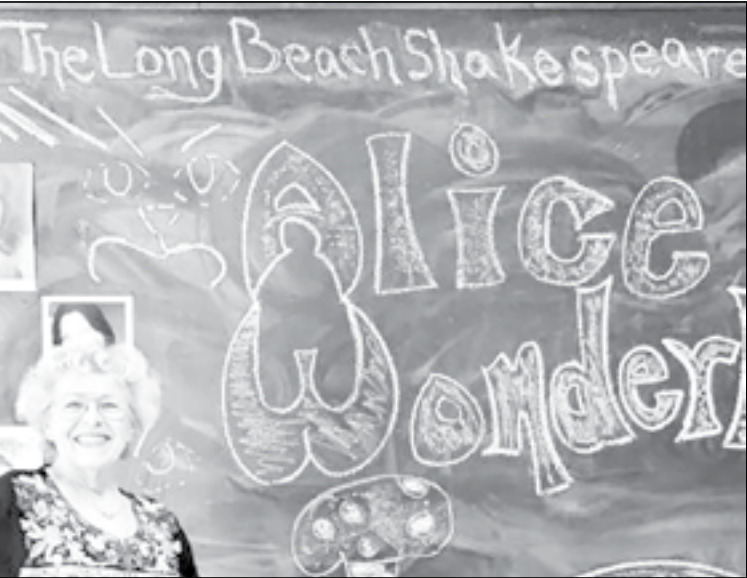 The Long Beach Shakespeare
Alice
Wonderl